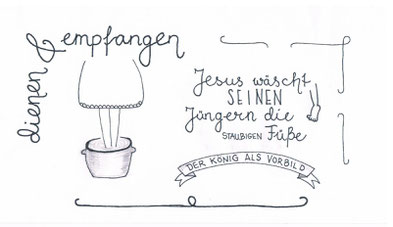 dienen & empfangen
Jesus wäscht
SEINEN
Jüngern die
STAUBIGEN Füße
DER KÖNIG ALS VORBILD